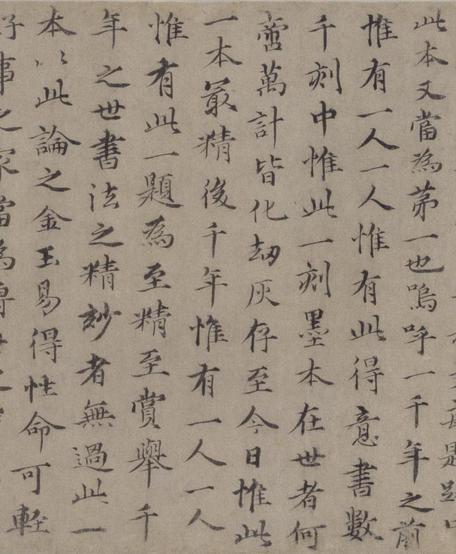 此本又當為第一也嗚呼一千年之前
惟有一人一人惟有此得意書數
千刻中惟此一刻墨本在世者何
啻萬計皆化劫灰存至今日惟此
一本最精後千年惟有一人一人
惟有此一題為至精至賞舉千
年之世書法之精妙者無過此一
本以此論之金玉易得性命可輕
好事之家當為傳世之